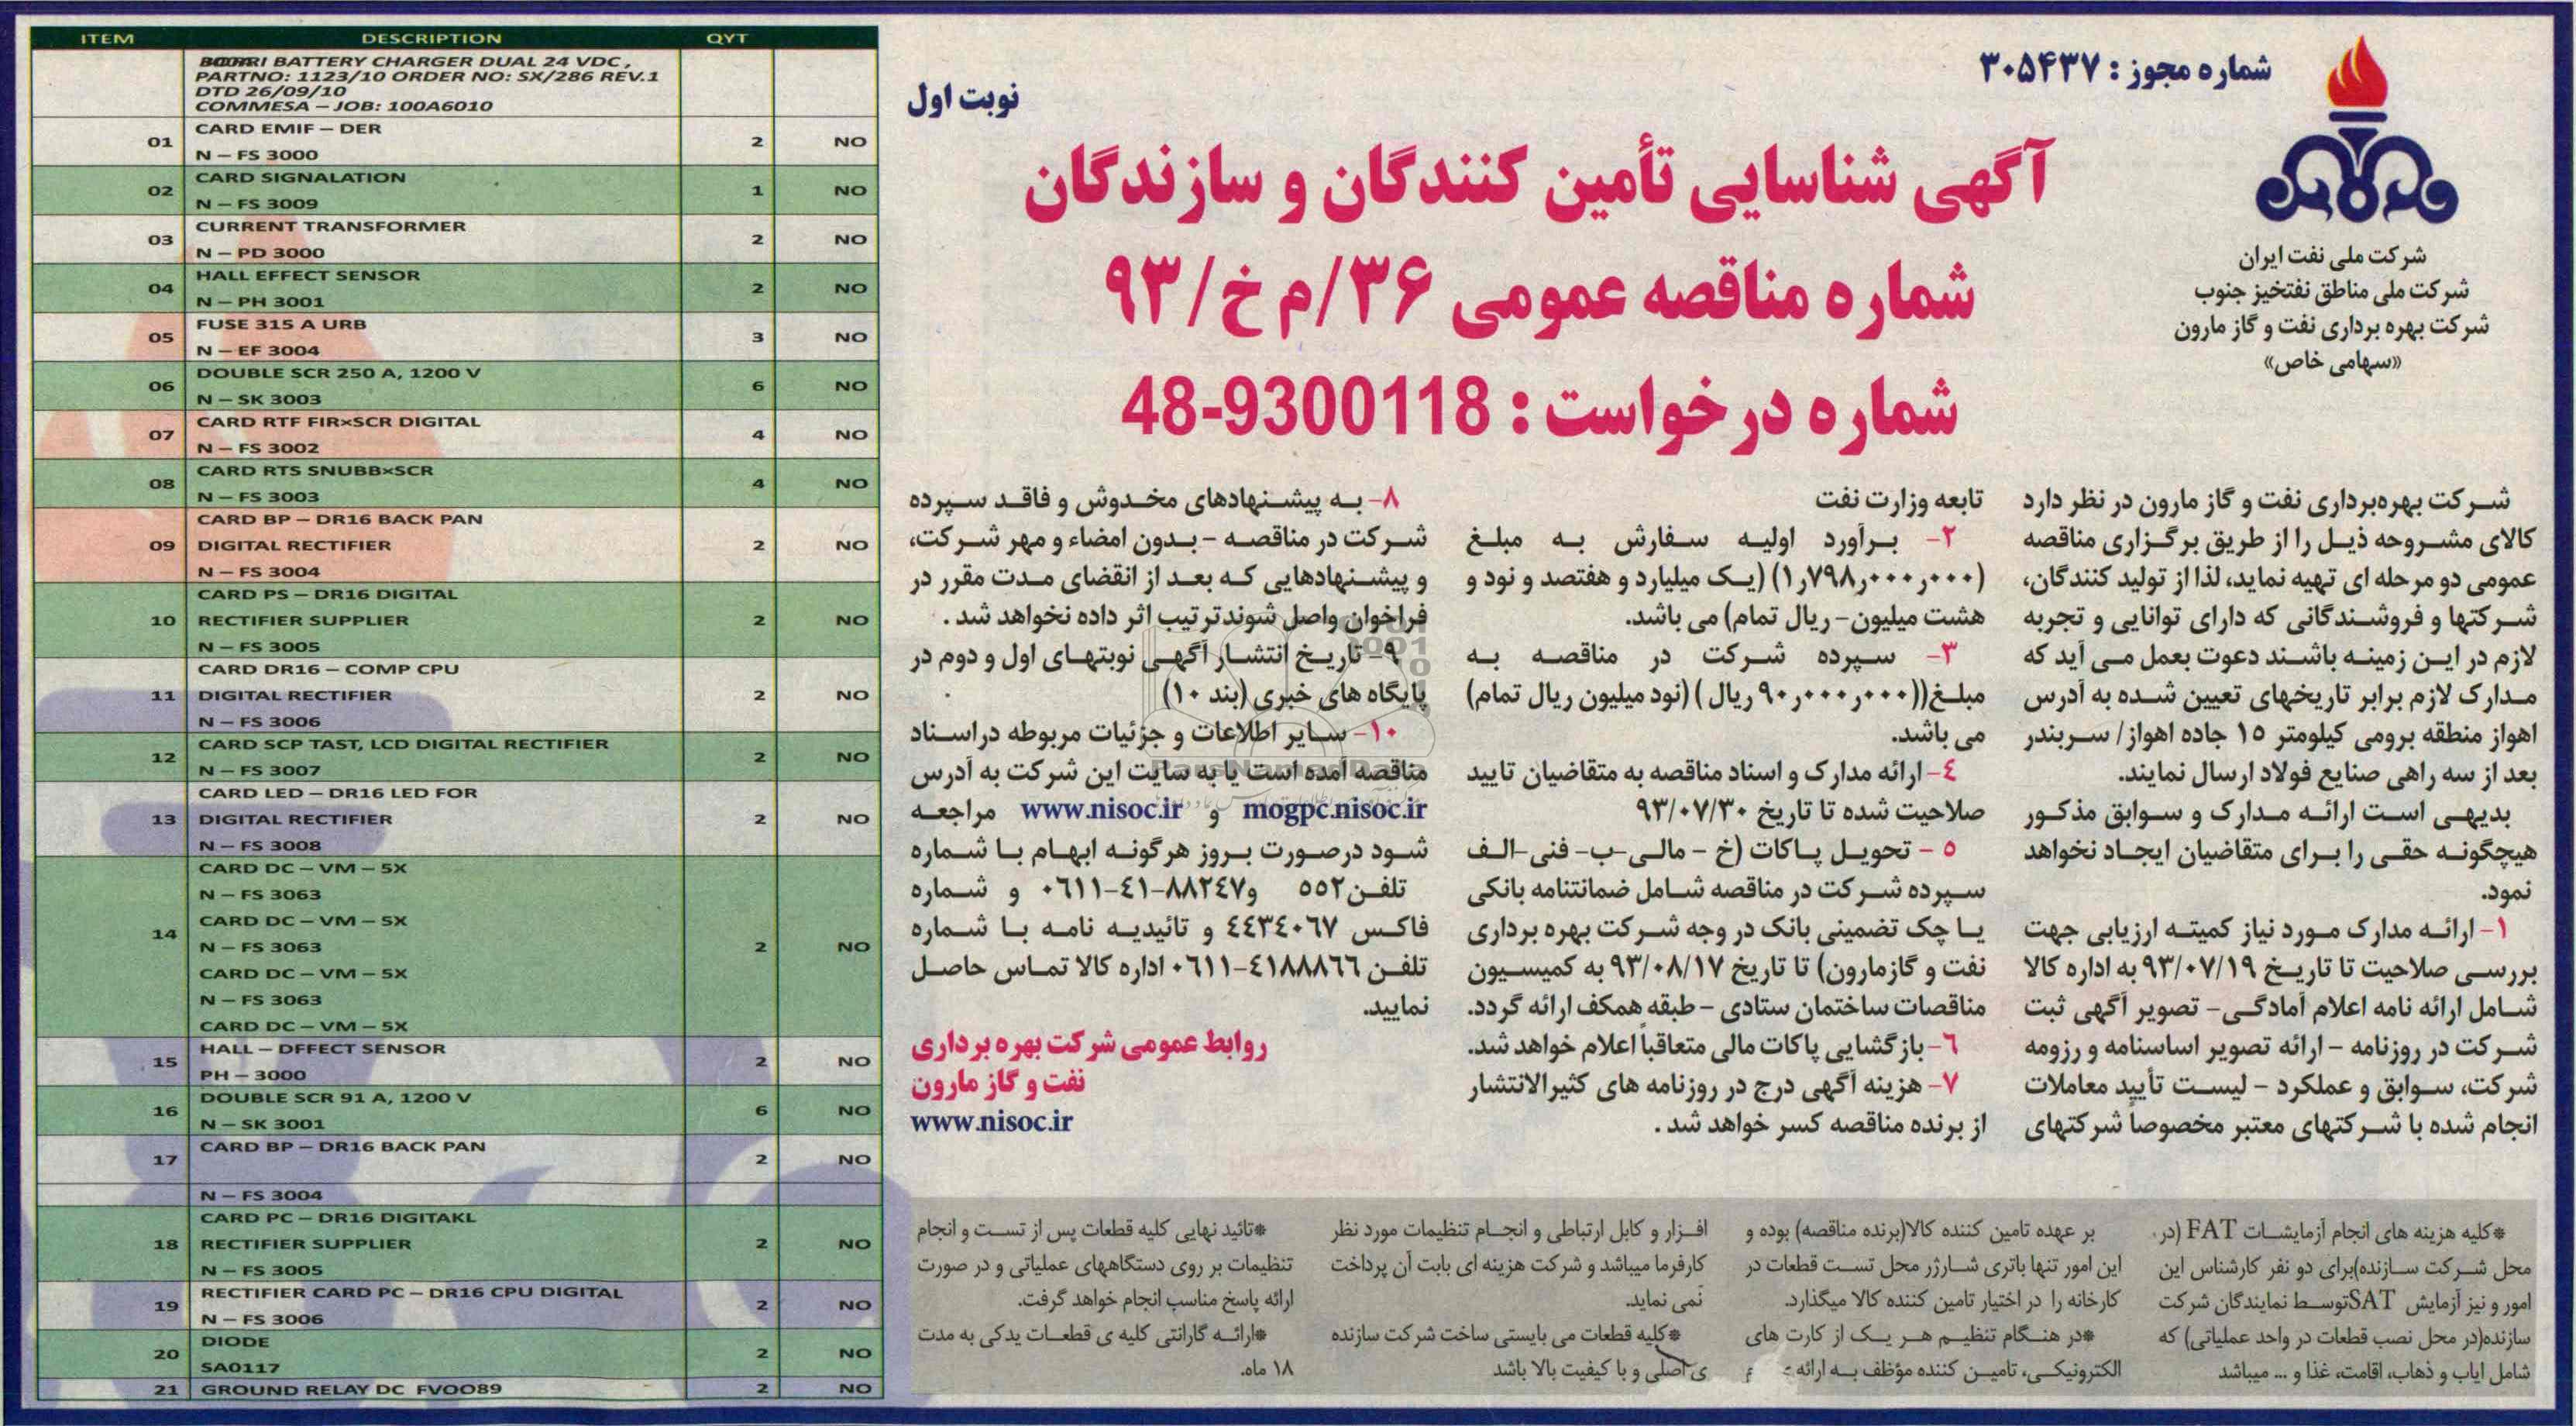 شماره مجوز : ۳۰۵۴۳۷
نوبت اول
شرکت ملی نفت ایران
شرکت ملی مناطق نفتخیز جنوب
شرکت بهره برداری نفت و گاز مارون
«سهامی خاص»
آگهی شناسایی تأمین کنندگان و سازندگان
شماره مناقصه عمومی ۳۶/م خ/۹۳
شماره درخواست : 9300118-48
شرکت بهره‌برداری نفت و گاز مارون در نظر دارد
کالای مشروحه ذیل را از طریق برگزاری مناقصه
عمومی دو مرحله ای تهیه نماید، لذا از تولید کنندگان،
شرکتها و فروشندگانی که دارای توانایی و تجربه
لازم در این زمینه باشند دعوت بعمل می آید که
مدارک لازم برابر تاریخهای تعیین شده به آدرس
اهواز منطقه برومی کیلومتر ۱۵ جاده اهواز/ سربندر
بعد از سه راهی صنایع فولاد ارسال نمایند.
بدیهی است ارائه مدارک و سوابق مذکور
هیچگونه حقی را برای متقاضیان ایجاد نخواهد
نمود.
۱- ارائه مدارک مورد نیاز کمیته ارزیابی جهت
بررسی صلاحیت تا تاریخ ۹۳/۰۷/۱۹ به اداره کالا
شامل ارائه نامه اعلام آمادگی- تصویر آگهی ثبت
شرکت در روزنامه - ارائه تصویر اساسنامه و رزومه
شرکت، سوابق و عملکرد - لیست تأیید معاملات
انجام شده با شرکتهای معتبر مخصوصاً شرکتهای
تابعه وزارت نفت
۲- برآورد اولیه سفارش به مبلغ
(۱٫۷۹۸٫۰۰۰٫۰۰۰) (یک میلیارد و هفتصد و نود و
هشت میلیون- ریال تمام) می باشد.
۳- سپرده شرکت در مناقصه به
مبلغ((۹۰٫۰۰۰٫۰۰۰ ریال ) (نود میلیون ریال تمام)
می باشد.
۴- ارائه مدارک و اسناد مناقصه به متقاضیان تایید
صلاحیت شده تا تاریخ ۹۳/۰۷/۳۰
۵ - تحویل پاکات (خ - مالی-ب- فنی-الف
سپرده شرکت در مناقصه شامل ضمانتنامه بانکی
یا چک تضمینی بانک در وجه شرکت بهره برداری
نفت و گازمارون) تا تاریخ ۹۳/۰۸/۱۷ به کمیسیون
مناقصات ساختمان ستادی - طبقه همکف ارائه گردد.
۶- بازگشایی پاکات مالی متعاقباً اعلام خواهد شد.
۷- هزینه آگهی درج در روزنامه های کثیرالانتشار
از برنده مناقصه کسر خواهد شد .
۸- به پیشنهادهای مخدوش و فاقد سپرده
شرکت در مناقصه - بدون امضاء و مهر شرکت،
و پیشنهادهایی که بعد از انقضای مدت مقرر در
فراخوان واصل شوندترتیب اثر داده نخواهد شد .
۹- تاریخ انتشار آگهی نوبتهای اول و دوم در
پایگاه های خبری (بند ۱۰)
۱۰- سایر اطلاعات و جزئیات مربوطه دراسناد
مناقصه آمده است یا به سایت این شرکت به آدرس
mogpc.nisoc.ir و www.nisoc.ir مراجعه
شود درصورت بروز هرگونه ابهام با شماره
تلفن۵۵۲ و۸۸۲۴۷-۴۱-۰۶۱۱ و شماره
فاکس ۴۴۳۴۰۶۷ و تائیدیه نامه با شماره
تلفن ۴۱۸۸۸۶۶-۰۶۱۱ اداره کالا تماس حاصل
نمایید.
روابط عمومی شرکت بهره برداری
نفت و گاز مارون
www.nisoc.ir
*کلیه هزینه های انجام آزمایشات FAT (در
محل شرکت سازنده)برای دو نفر کارشناس این
امور و نیز آزمایش SATتوسط نمایندگان شرکت
سازنده(در محل نصب قطعات در واحد عملیاتی) که
شامل ایاب و ذهاب، اقامت، غذا و ... میباشد
بر عهده تامین کننده کالا(برنده مناقصه) بوده و
این امور تنها باتری شارژر محل تست قطعات در
کارخانه را در اختیار تامین کننده کالا میگذارد.
*در هنگام تنظیم هر یک از کارت های
الکترونیکی، تامین کننده مؤظف به ارائه
افزار و کابل ارتباطی و انجام تنظیمات مورد نظر
کارفرما میباشد و شرکت هزینه ای بابت آن پرداخت
نمی نماید.
*کلیه قطعات می بایستی ساخت شرکت سازنده
ی اصلی و با کیفیت بالا باشد
*تائید نهایی کلیه قطعات پس از تست و انجام
تنظیمات بر روی دستگاههای عملیاتی و در صورت
ارائه پاسخ مناسب انجام خواهد گرفت.
*ارائه گارانتی کلیه ی قطعات یدکی به مدت
۱۸ ماه.
ITEM DESCRIPTION QYT
BATTERY CHARGER DUAL 24 VDC ,
PARTNO: 1123/10 ORDER NO: SX/286 REV.1
DTD 26/09/10
COMMESA – JOB: 100A6010
01 CARD EMIF – DER 2 NO
N – FS 3000
02 CARD SIGNALATION 1 NO
N – FS 3009
03 CURRENT TRANSFORMER 2 NO
N – PD 3000
04 HALL EFFECT SENSOR 2 NO
N – PH 3001
05 FUSE 315 A URB 3 NO
N – EF 3004
06 DOUBLE SCR 250 A, 1200 V 6 NO
N – SK 3003
07 CARD RTF FIR×SCR DIGITAL 4 NO
N – FS 3002
08 CARD RTS SNUBB×SCR 4 NO
N – FS 3003
CARD BP – DR16 BACK PAN
09 DIGITAL RECTIFIER 2 NO
N – FS 3004
CARD PS – DR16 DIGITAL
10 RECTIFIER SUPPLIER 2 NO
N – FS 3005
CARD DR16 – COMP CPU
11 DIGITAL RECTIFIER 2 NO
N – FS 3006
12 CARD SCP TAST, LCD DIGITAL RECTIFIER 2 NO
N – FS 3007
CARD LED – DR16 LED FOR
13 DIGITAL RECTIFIER 2 NO
N – FS 3008
CARD DC – VM – 5X
N – FS 3063
CARD DC – VM – 5X
14 N – FS 3063 2 NO
CARD DC – VM – 5X
N – FS 3063
CARD DC – VM – 5X
15 HALL – DFFECT SENSOR 2 NO
PH – 3000
16 DOUBLE SCR 91 A, 1200 V 6 NO
N – SK 3001
17 CARD BP – DR16 BACK PAN 2 NO
N – FS 3004
CARD PC – DR16 DIGITAKL
18 RECTIFIER SUPPLIER 2 NO
N – FS 3005
19 RECTIFIER CARD PC – DR16 CPU DIGITAL 2 NO
N – FS 3006
20 DIODE 2 NO
SA0117
21 GROUND RELAY DC FVOO89 2 NO